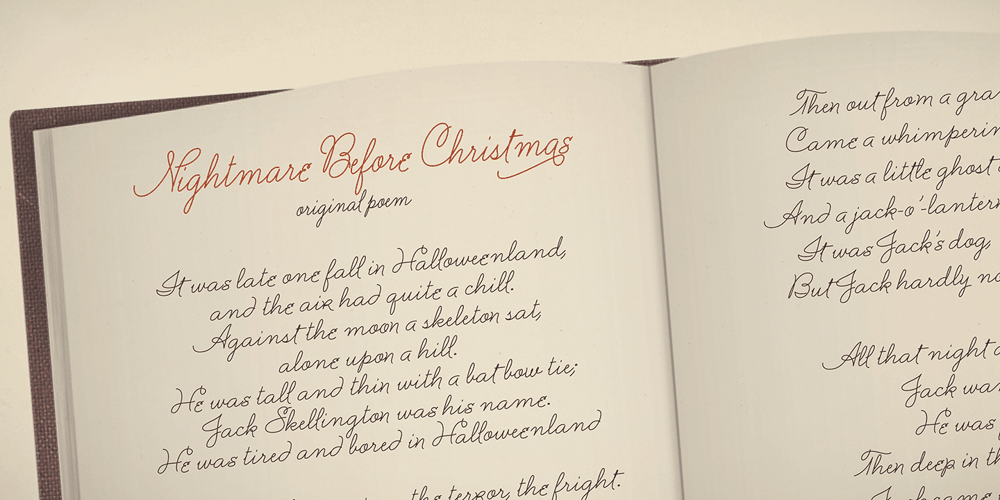 Nightmare Before Christmas
original poem
It was late one fall in Halloweenland,
and the air had quite a chill.
Against the moon a skeleton sat,
alone upon a hill.
He was tall and thin with a bat bow tie;
Jack Skellington was his name.
He was tired and bored in Halloweenland
the terror, the fright.
Then out from a
Came a
It was a little ghost
And a jack-o'-lantern
It was Jack's dog,
But Jack hardly
All that night
Jack
He was
Then deep in